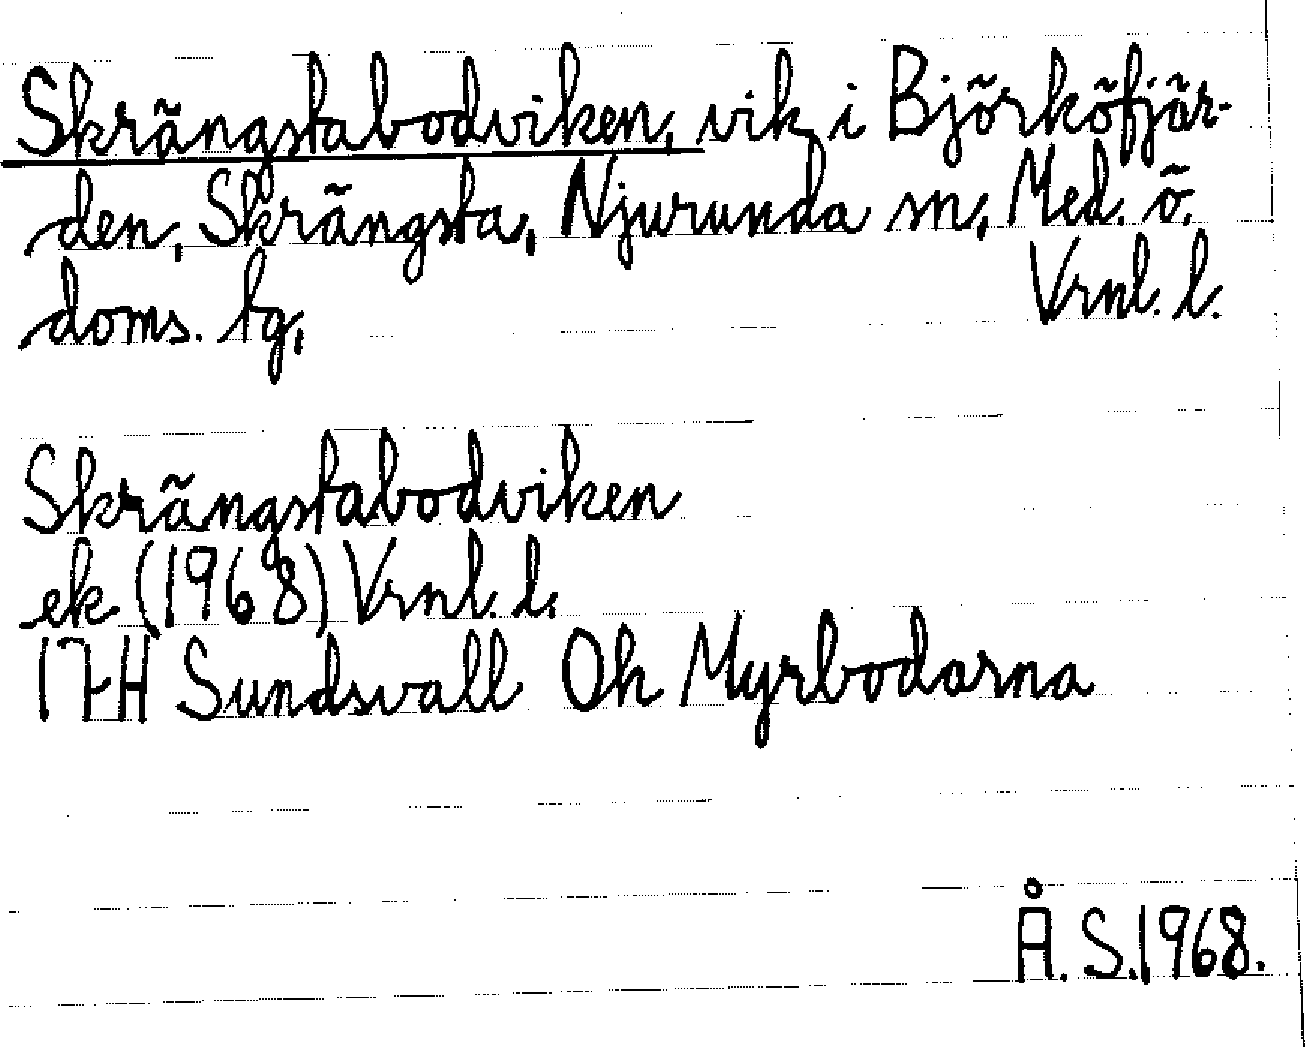 Skrängstabodviken, vik i Björköfjär-
den, Skrängsta, Njurunda sn, Med. ö.
doms. tg, Vrnl. l.
Skrängstabodviken
ek (1968) Vrnl. l.
17H Sundsvall Ok Myrbodarna
Å. S. 1968.